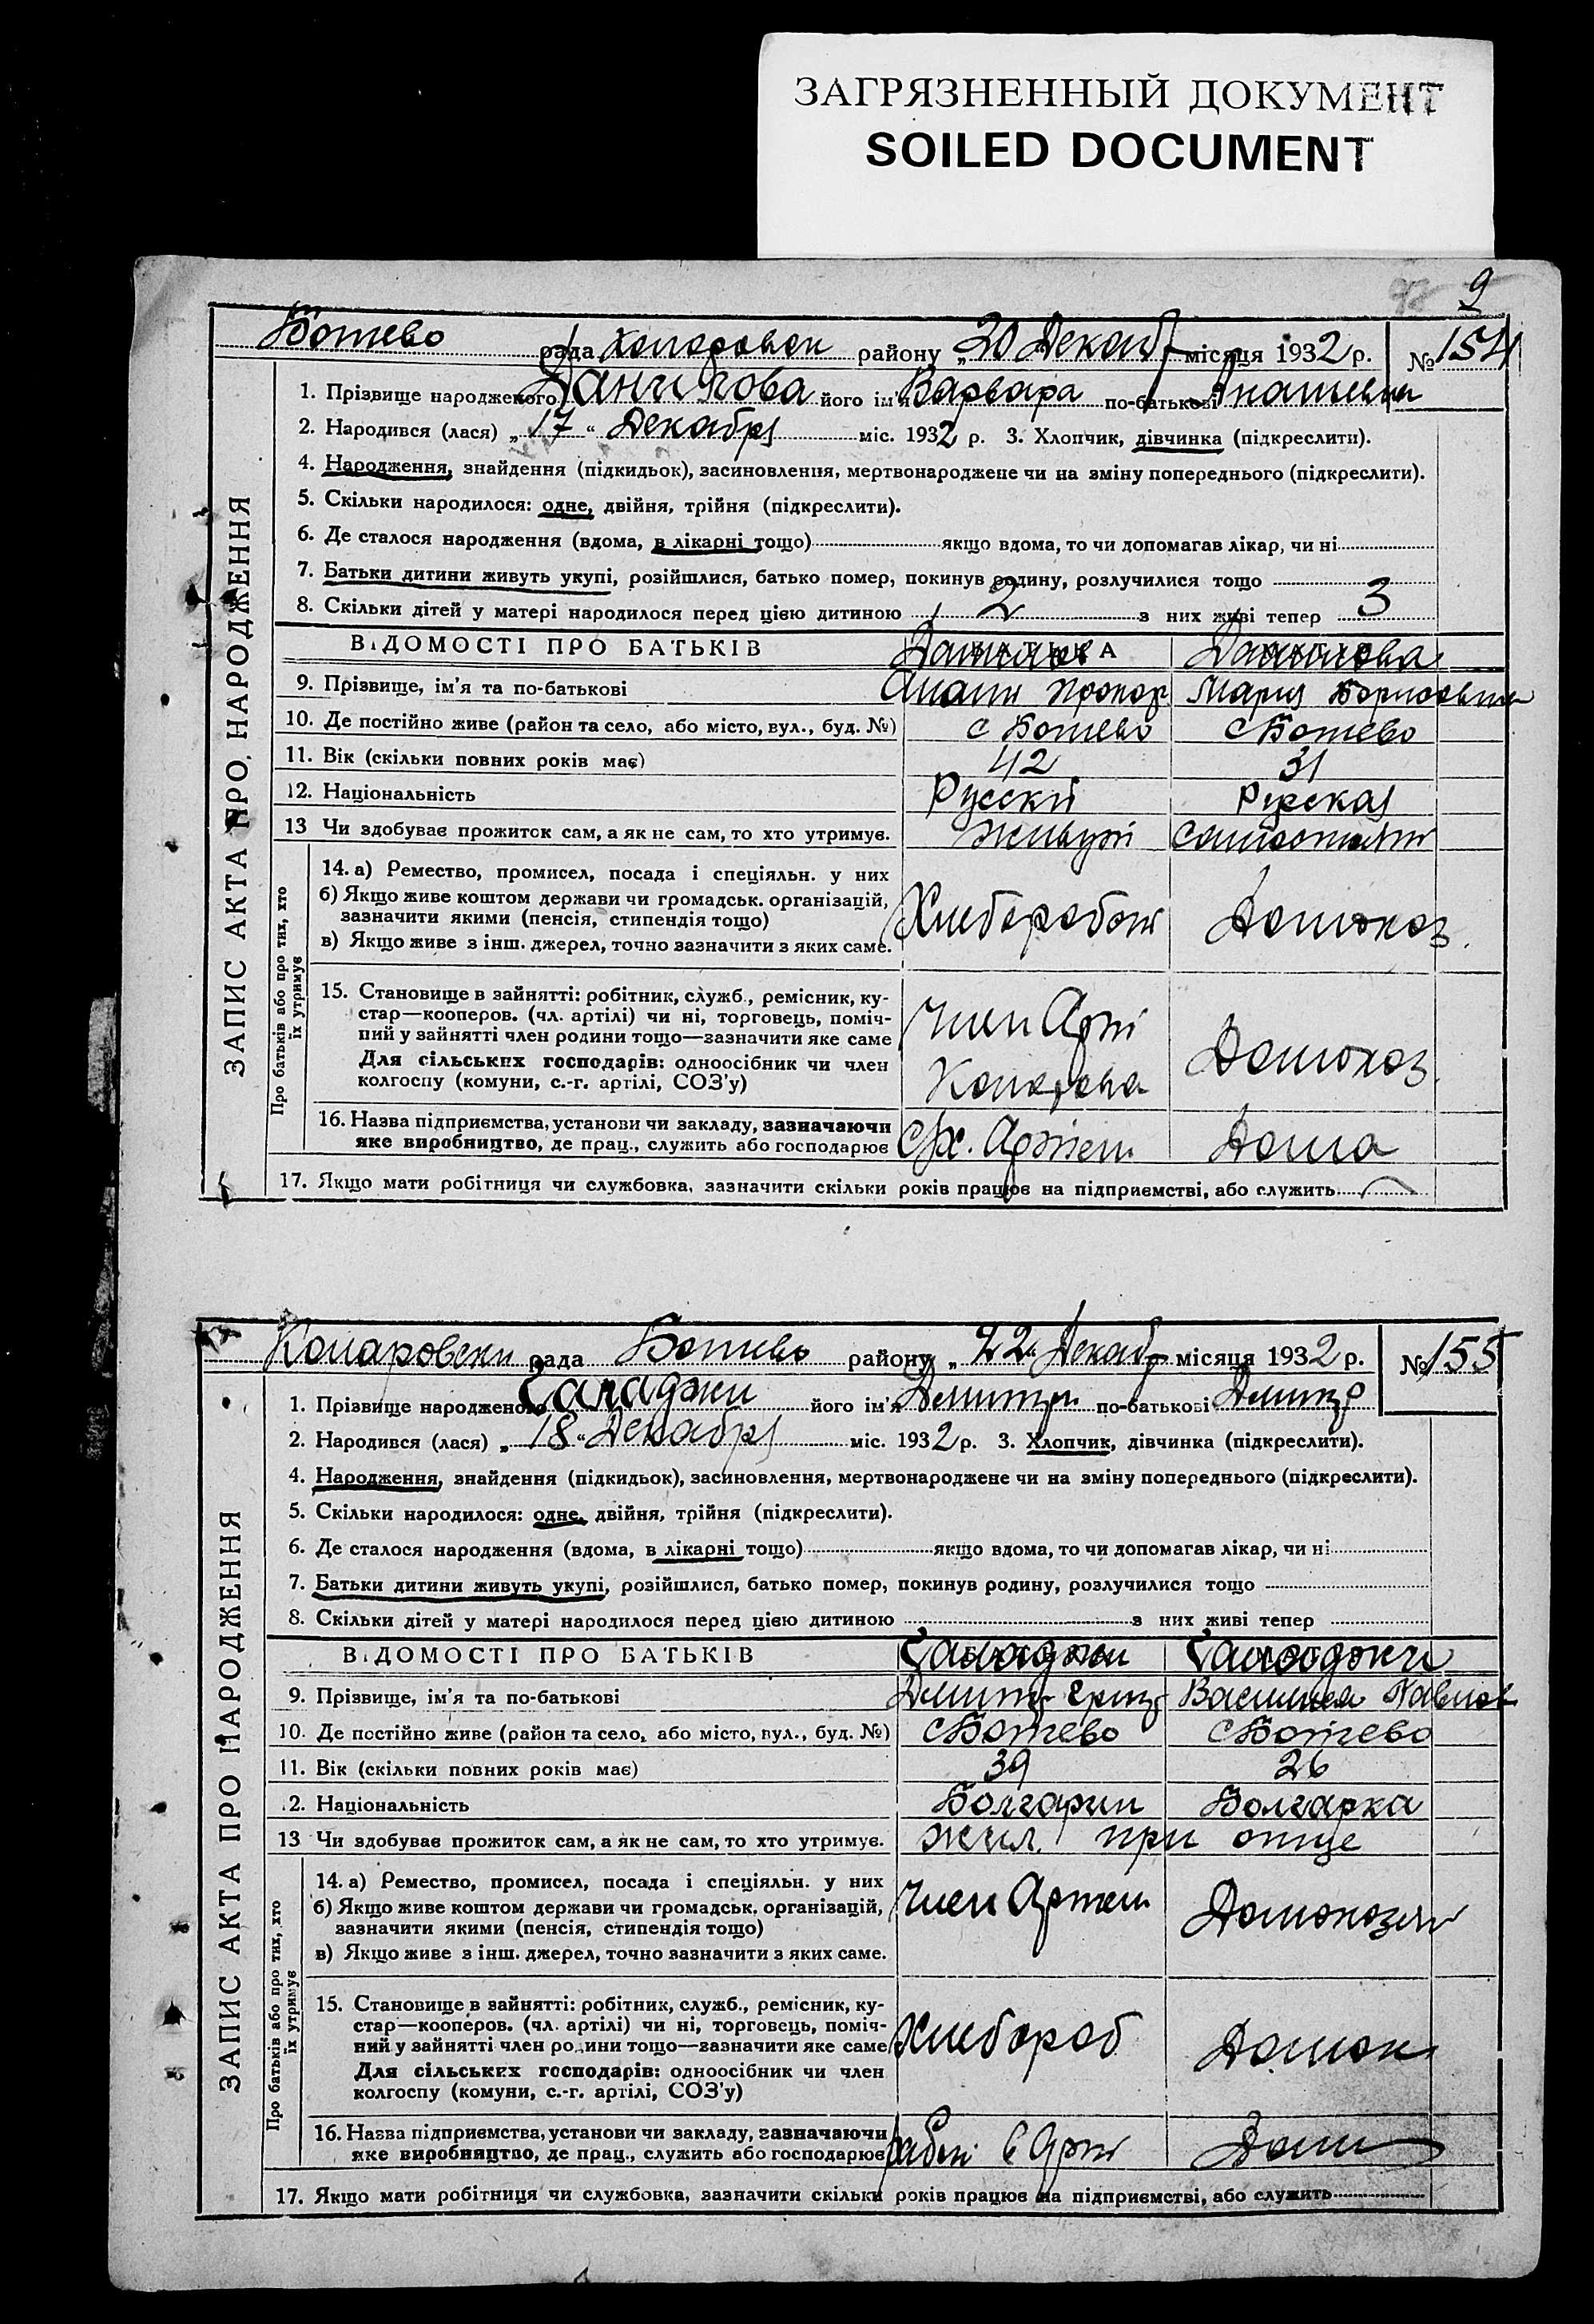 ЗАГРЯЗНЕННЫЙ ДОКУМЕНТ
SOILED DOCUMENT
9
Ботево рада Коларовск району „20 Декабр місяця 1932 р. № 154
1. Прізвище народженого Данилова його ім'я Варвара по-батькові
2. Народився (лася) „17“ Декабря міс. 1932 р. 3. Хлопчик, дівчинка (підкреслити).
4. Народження, знайдення (підкидьок), засиновлення, мертвонароджене чи на зміну попереднього (підкреслити).
5. Скільки народилося: одне, двійня, трійня (підкреслити).
6. Де сталося народження (вдома, в лікарні тощо) якщо вдома, то чи допомагав лікар, чи ні
7. Батьки дитини живуть укупі, розійшлися, батько помер, покинув родину, розлучилися тощо
8. Скільки дітей у матері народилося перед цією дитиною 2 з них живі тепер 3
ВІДОМОСТІ ПРО БАТЬКІВ Данилов Данилова
9. Прізвище, ім'я та по-батькові Мария Борисовна
10. Де постійно живе (район та село, або місто, вул., буд. №) с Ботево с Ботево
11. Вік (скільки повних років має) 42 31
12. Національність Русский Русская
13 Чи здобуває прожиток сам, а як не сам, то хто утримує. Живут самостоят
14. а) Ремество, промисел, посада і спеціяльн. у них
б) Якщо живе коштом держави чи громадськ. організацій,
зазначити якими (пенсія, стипендія тощо)
в) Якщо живе з інш. джерел, точно зазначити з яких саме.
Хлебороб Домохоз.
15. Становище в зайнятті: робітник, служб., ремісник, ку-
стар—кооперов. (чл. артілі) чи ні, торговець, поміч-
ний у зайнятті член родини тощо—зазначити яке саме
Для сільських господарів: одноосібник чи член
колгоспу (комуни, с.-г. артілі, СОЗ'у)
Член Арт
Коларова
Домохоз.
16. Назва підприємства, установи чи закладу, зазначаючи
яке виробництво, де прац., служить або господарює С/х. Артел. Дома
17. Якщо мати робітниця чи службовка, зазначити скільки років працює на підприємстві, або служить
ЗАПИС АКТА ПРО НАРОДЖЕННЯ
Про батьків або про тих, хто
їх утримує
Коларовски рада Ботево району „22“ Декабр місяця 1932 р. № 155
1. Прізвище народженого Саладжи його ім'я Дмитри по-батькові Дмитр
2. Народився (лася) „18“ Декабря міс. 1932 р. 3. Хлопчик, дівчинка (підкреслити).
4. Народження, знайдення (підкидьок), засиновлення, мертвонароджене чи на зміну попереднього (підкреслити).
5. Скільки народилося: одне, двійня, трійня (підкреслити).
6. Де сталося народження (вдома, в лікарні тощо) якщо вдома, то чи допомагав лікар, чи ні
7. Батьки дитини живуть укупі, розійшлися, батько помер, покинув родину, розлучилися тощо
8. Скільки дітей у матері народилося перед цією дитиною з них живі тепер
ВІДОМОСТІ ПРО БАТЬКІВ Саладжи Саладжи
9. Прізвище, ім'я та по-батькові Дмитр Василиса Павлов
10. Де постійно живе (район та село, або місто, вул., буд. №) с Ботево с Ботево
11. Вік (скільки повних років має) 39 26
12. Національність Болгарин Болгарка
13 Чи здобуває прожиток сам, а як не сам, то хто утримує. Жил. при отце
14. а) Ремество, промисел, посада і спеціяльн. у них
б) Якщо живе коштом держави чи громадськ. організацій,
зазначити якими (пенсія, стипендія тощо)
в) Якщо живе з інш. джерел, точно зазначити з яких саме.
Член Артел Домохозяй
15. Становище в зайнятті: робітник, служб., ремісник, ку-
стар—кооперов. (чл. артілі) чи ні, торговець, поміч-
ний у зайнятті член родини тощо—зазначити яке саме
Для сільських господарів: одноосібник чи член
колгоспу (комуни, с.-г. артілі, СОЗ'у)
Хлебороб Домохо
16. Назва підприємства, установи чи закладу, зазначаючи
яке виробництво, де прац., служить або господарює в Арт Дом
17. Якщо мати робітниця чи службовка, зазначити скільки років працює на підприємстві, або служить
ЗАПИС АКТА ПРО НАРОДЖЕННЯ
Про батьків або про тих, хто
їх утримує